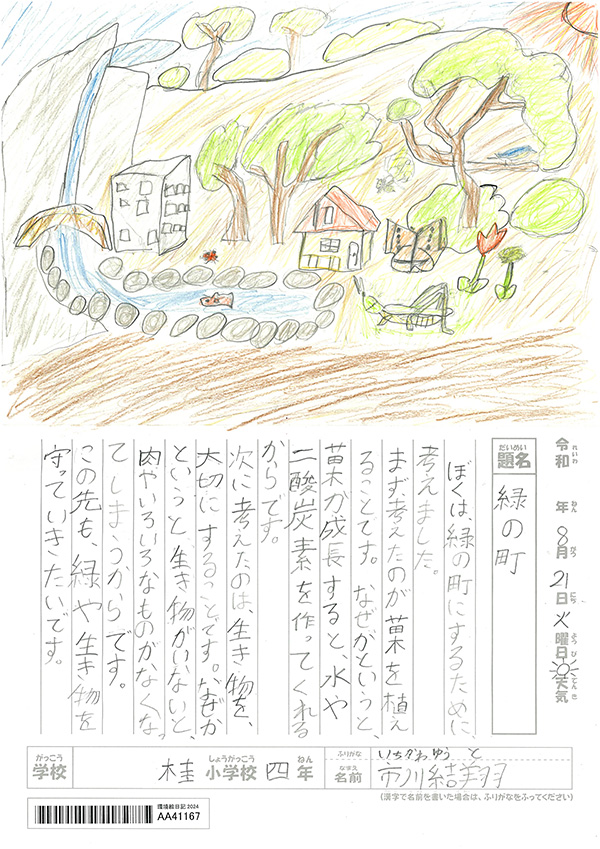 令和 年 8月 21日 火曜日 天気
れいわ ねん がつ にち ようび てんき
だいめい
題名
緑の町
ぼくは、緑の町にするために、
考えました。
まず考えたのが苗を植え
ることてす。なぜかというと、
苗が成長すると、水や
二酸炭素を作ってくれる
からです。
次に考えたのは、生き物を、
大切にすることです。なぜか
というと、生き物がいないと、
肉やいろいろなものがなくなっ
てしまうからです。
この先も、緑や生き物を
守っていきたいです。
がっこう しょうがっこう ねん ふりがな いちかわゆうと
学校 桂小学校 四年
なまえ
名前 市川結翔
(漢字で名前を書いた場合は、ふりがなをふってください)
環境絵日記 2024
AA41167